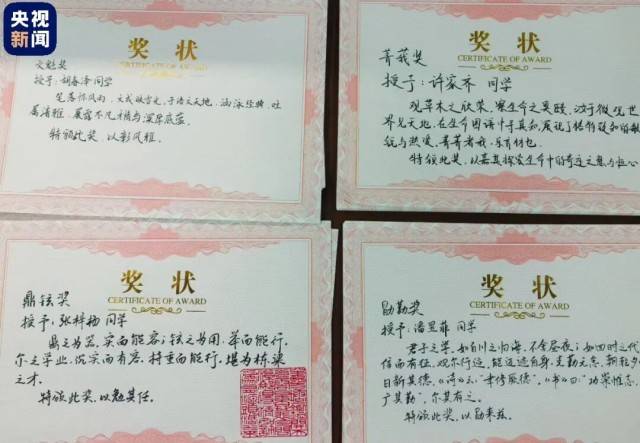 央视
新闻
奖状
CERTIFICATE OF AWARD
文魁奖
授予：胡春泽同学
笔落惊风雨，文成破雪光，于语文天地，涵泳经典，吐
属清雅，展露不凡才情与深厚底蕴。
特颁此奖，以彰风雅。
奖状
CERTIFICATE OF AWARD
菁莪奖
授予：许家齐 同学
观草木之欣荣，察生命之奥赜，汝于微观世
界见天地，在生命图谱中寻真知，展现了格物致知的
与热爱，菁菁者莪，乐育材也。
特颁此奖，以嘉其探索生命
奖状
CERTIFICATE OF AWARD
鼎铉奖
授予：张梓杨同学
鼎之为器，实而能容；铉之为用，举而能行，
尔之学业，沉实而有容，持重而能行，堪为栋梁
之才。
特颁此奖，以勉其任。
奖状
CERTIFICATE OF AWARD
勖勤奖
授予：潘昱菲 同学
君子之学，如百川之归海，不舍昼夜；如四时之代
信而有征，观尔行迹，能迈迹自身，克勤无怠，朝乾夕
日新其德，《诗》云“聿修厥德”，《书》曰“功崇惟志，
广其勤”，尔其有之。
特颁此奖，以勖来兹。